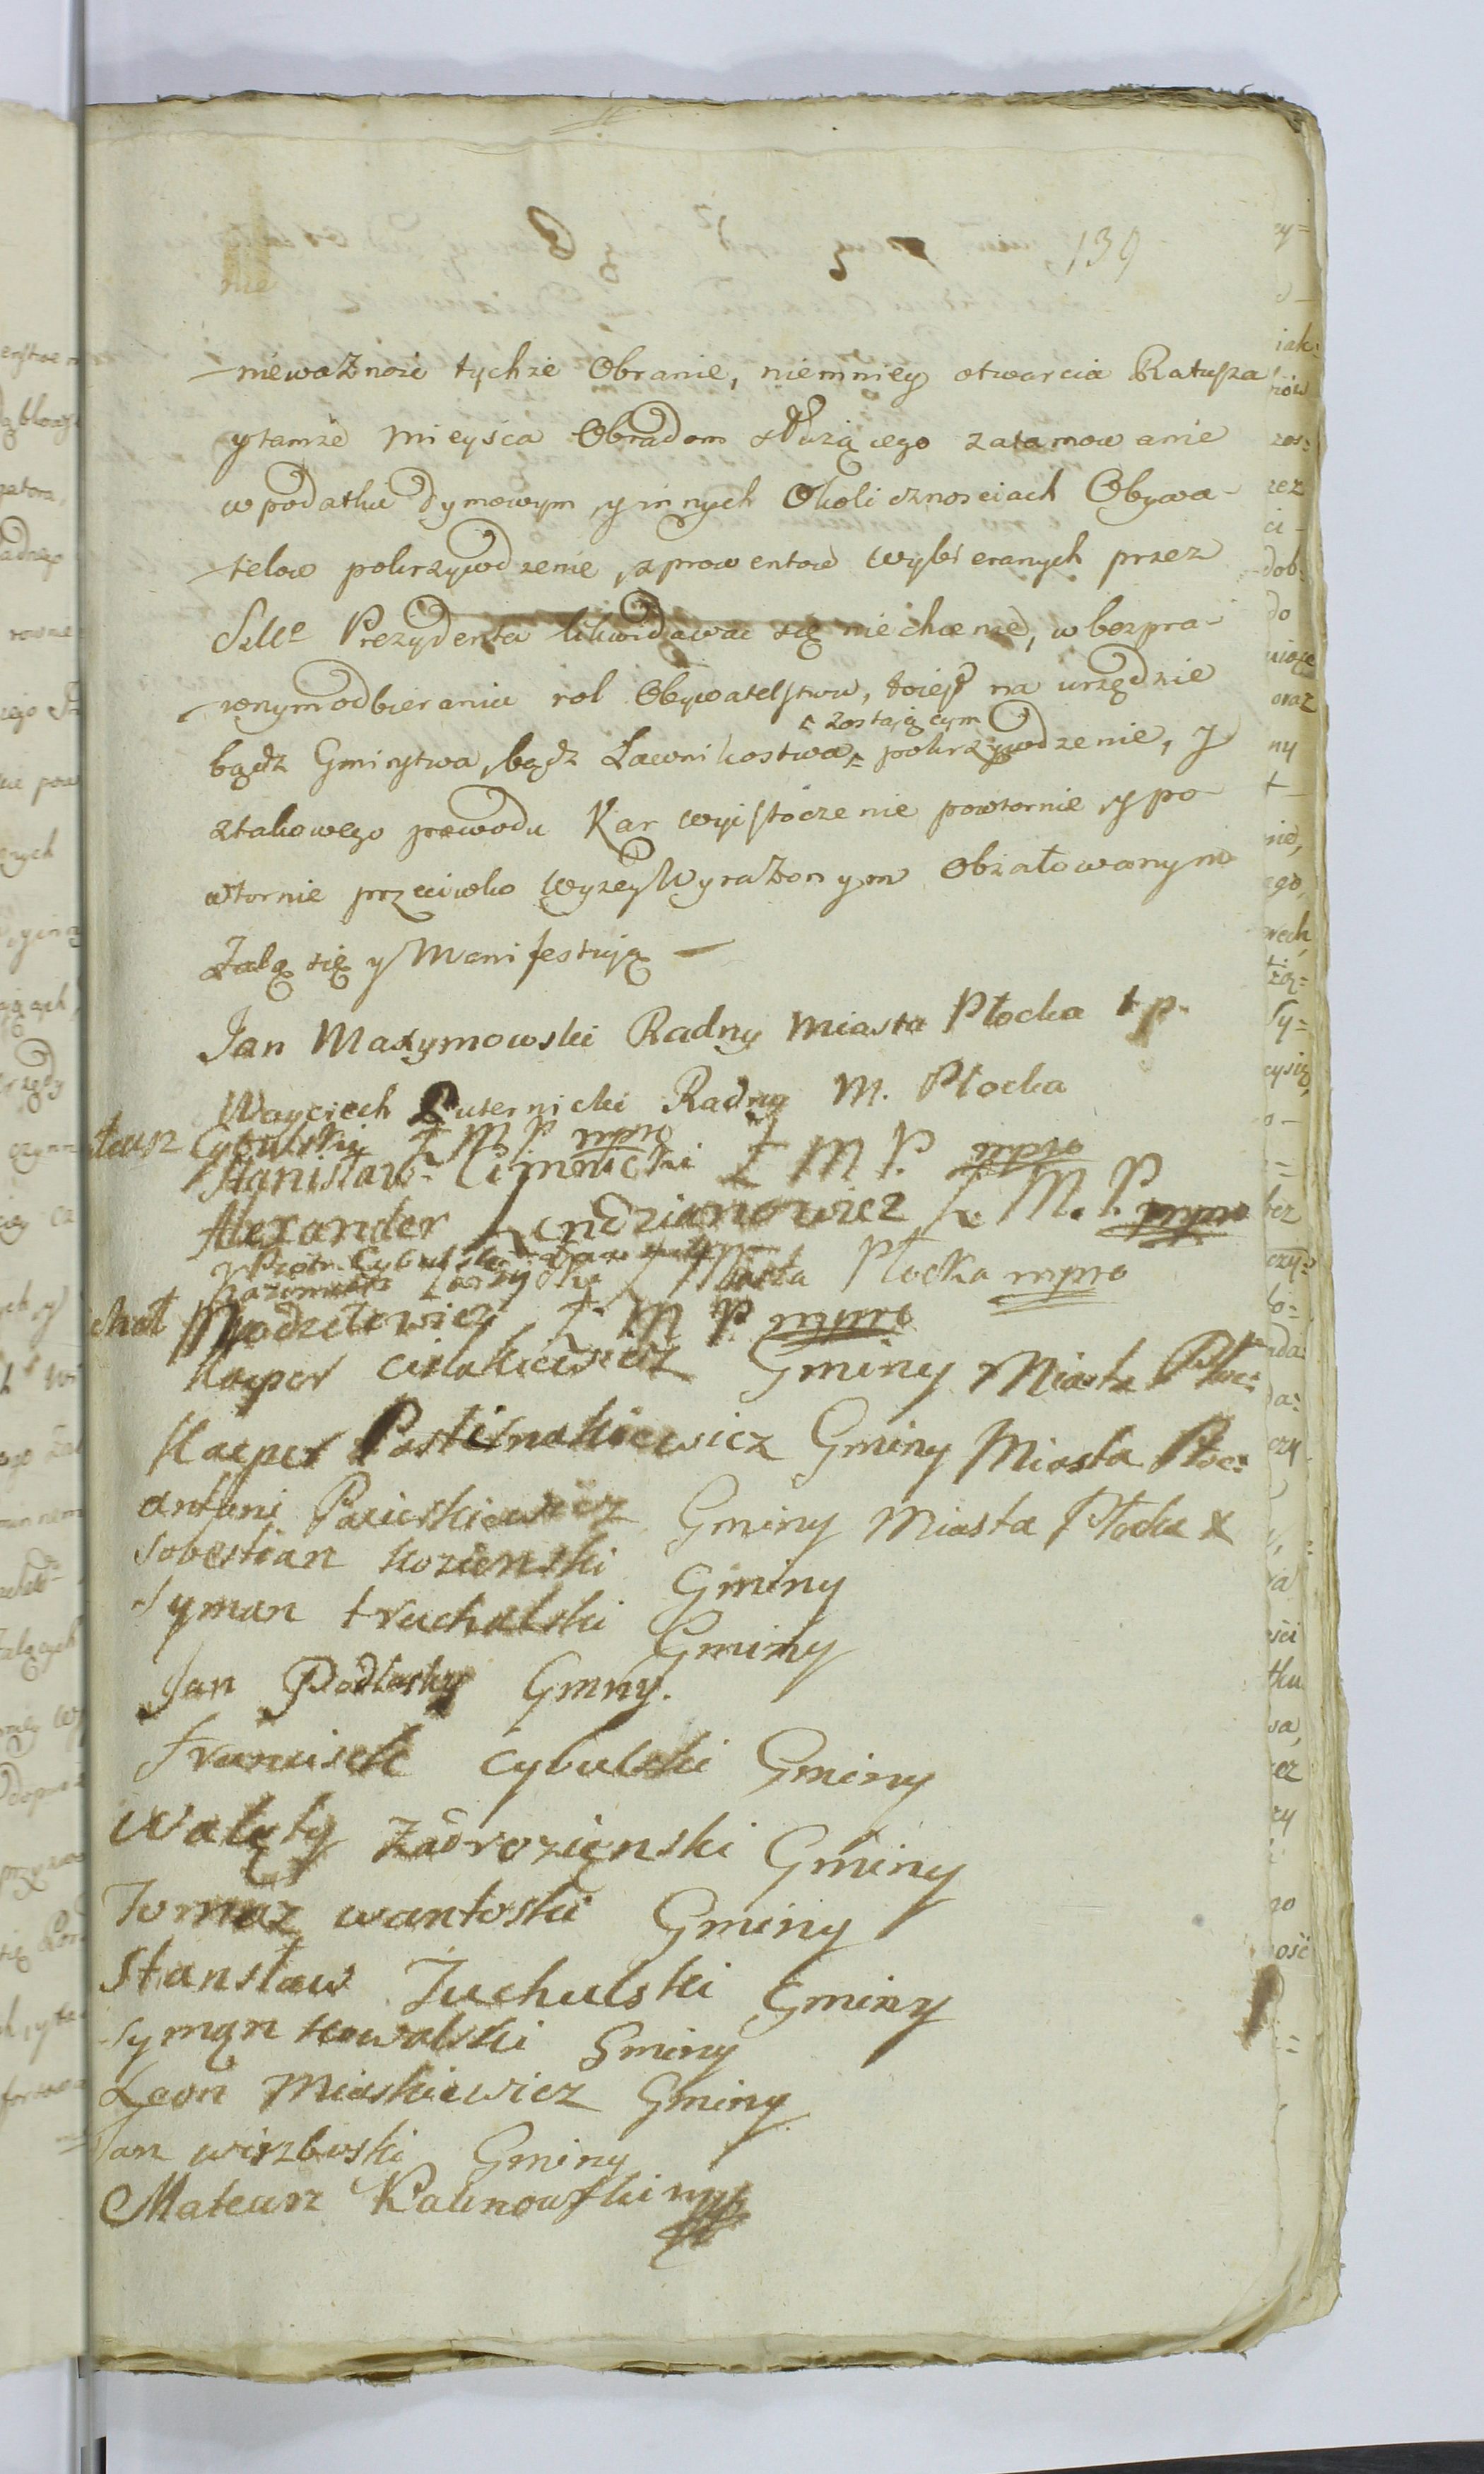 139
nieważność tychże Obranie, niemniey otwarcia Ratusza
y tamże Mieysca Obradom służącego zatamowanie
w podatku dymowym, y innych Okolicznosciach Obywa-
telow pokrzywdzenie, z prowentow wybieranych przez
Szlle Prezydenta likwidawac się niechcenie, w bezpra-
wnym odbieraniu rol Obywatelstwu, toiest na urzędzie
zostaiącym
bądz Gminstwa, bądz Ławnikostwa, pokrzywdzenie, y
ztakowego powodu Kar wyistoczenie powtornie, y po
wtornie przeciwko wyzey Wyrażonym Obżałowanym
Żalą się y Manifestują —
Jan Maxymowski Radny Miasta Płocka
Wayciech Luternicki Radny M. Płocka
teusz Cybulsky Ł M P mpro
Stanisław Ciimnicki Ł M P. mpro
Alexander Kendzianowicz Ł. M. P. mpro
Ł Miasta Płocka mpro
chał Modzelewicz Ł M P. mpro
Kacper Cislakiewicz Gminy Miasta Płoc:
Kacper Pasternakiewicz Gminy Miasta Płoc:
antoni Gminy Miasta Płocka x
Sobestian kozienski Gminy
Syman truchalski Gminy
Jan Podlasky Gmny.
Franciszk Cybulski Gminy
Walęty Zadrozięnski Gminy
Tomaz wantoski Gminy
Stansław Żuchulski Gminy
Symąn kowalski Gminy
Leon Miaskiewicz Gminy
Jan wirzboski Gminy
Mateusz Kalinowski mpp